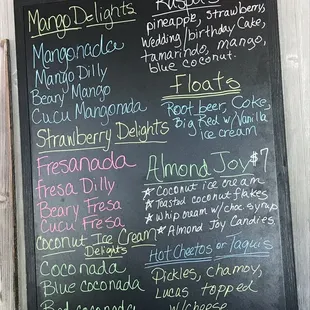 Mango Delights
Mangonada
Mango Dilly
Beary Mango
Cucu Mangonada
Strawberry Delights
Fresanada
fresa Dilly
Beary Fresa
Cucu Fresa
Coconut Ice Cream
Delights
Coconada
Blue coconada
coconada
Raspas
pineapple, strawberry,
Wedding/birthday Cake,
tamarindo, mango,
blue coconut.
Floats
Root beer, Coke,
Big Red w/Vanilla
ice cream
Almond Joy $7
★ Coconut ice cream
★ Toasted coconut flakes
★ Whip cream w/choc. syrup
★ Almond Joy Candies
Hot Cheetos or Taquis
Pickles, chamoy,
Lucas topped
w/cheese